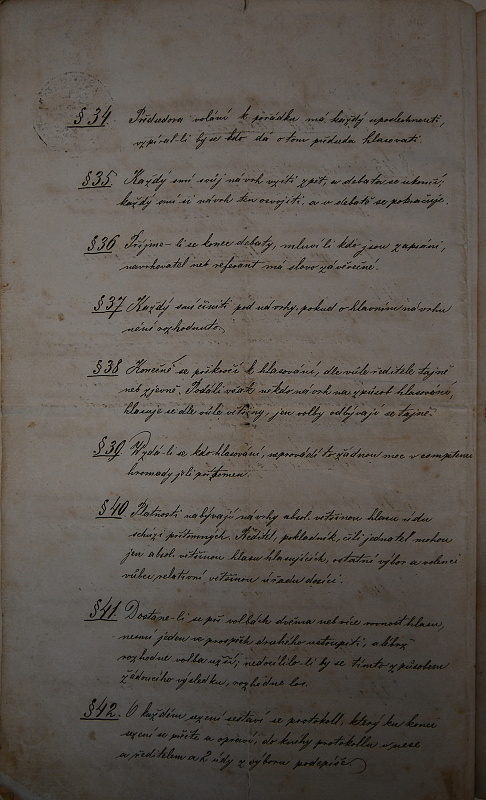 § 34. Předsedova volání k pořádku má každý uposlechnouti,
vzpíral-li by se kdo dá o tom předseda hlasovati.
§ 35. Každý smí svůj návrh vzíti zpět, a debata se ukončí,
každý smí si návrh ten osvojiti, a v debatě se pokračuje.
§ 36 Přijme-li se konec debaty, mluví li kdo jsou zapsáni,
navrhovatel neb referent má slovo závěrečné.
§ 37 Každý smí činiti pod návrhy, pokud o hlavním návrhu
není rozhodnuto.
§ 38 Konečně se přikročí k hlasování, dle vůle ředitele tajně
neb zjevně. Podáli však někdo návrh na způsob hlasování,
hlasuje se dle vůle většiny, jen volby odbývají se tajně
§ 39. Vzdá-li se kdo hlasování, neprovádí to žádnou moc v
hromady jeli přítomen.
§ 40 Platnosti nabývají návrhy absol. většinou hlasu údu
schůzi přítomných. Ředitel, pokladník, čili jednatel mohou
jen absol. většinou hlasu hlasujících, ostatní výbor a
vůbec relativní většinou úřadu dosíci.
§ 41 Dostane-li se při volbách dvěma neb více rovnost hlasu,
nesmí jeden ve prospěch druhého ustoupiti, alebrž
rozhodne volba užší; nedocílilo-li by se tímto způsobem
žádoucího výsledku, rozhodne los.
§ 42. O každém sezení sestaví se protokoll, který ku konci
sezení se přečte a opraví, do knihy protokollu v nese
a ředitelem a 2 údy z výboru podepíše.